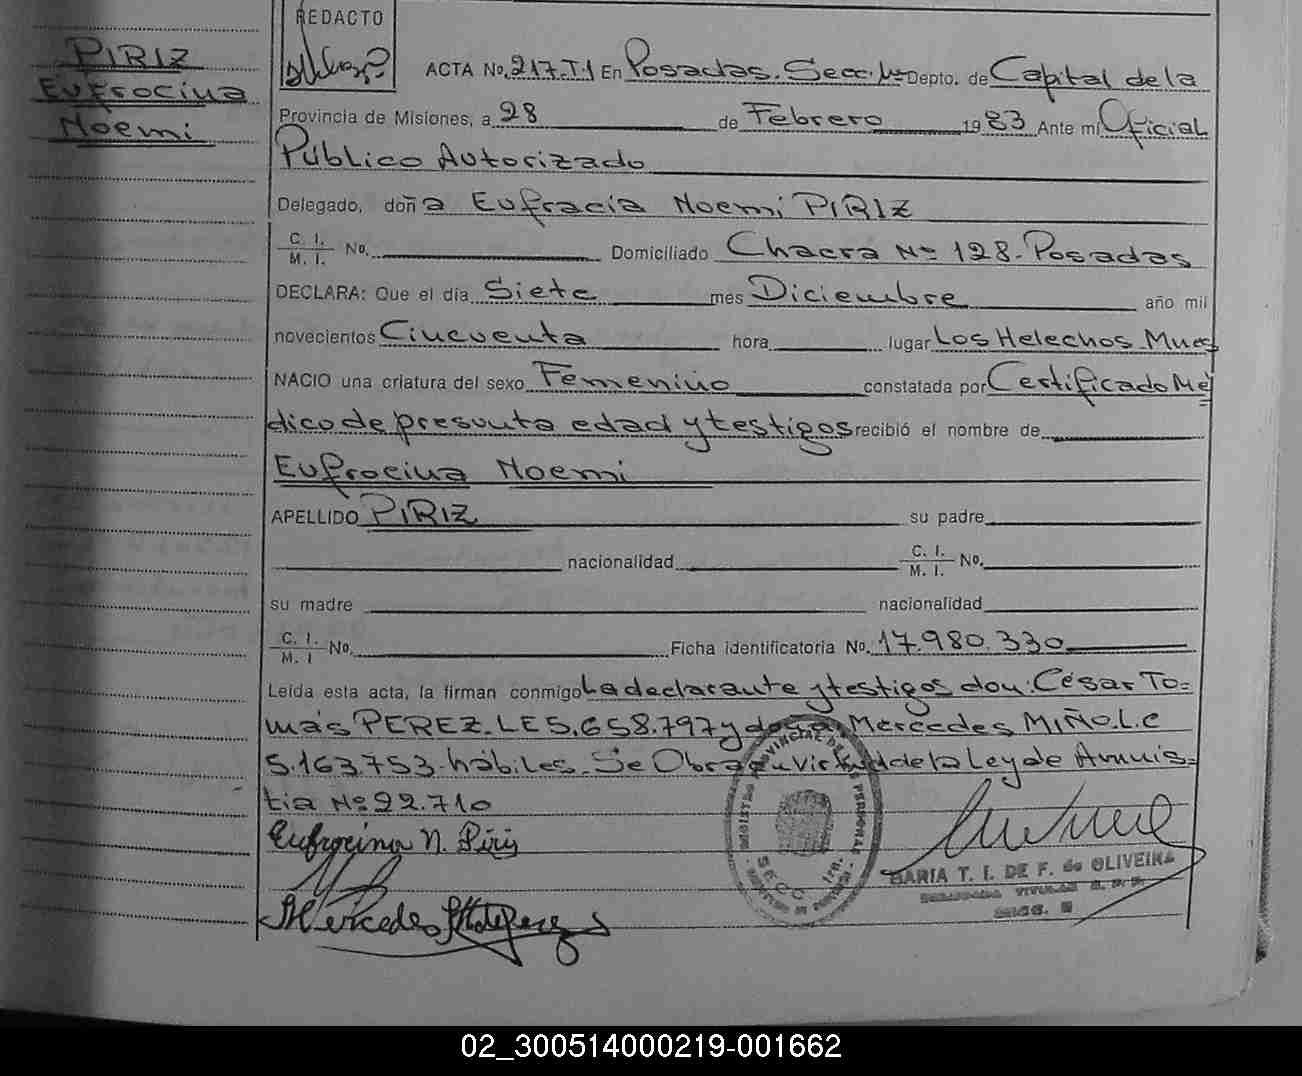 PIRIZ
Eufrocina
Noemi
REDACTO
ACTA No. 217.T.1 En Posadas. Secc. 1ra Depto. de Capital de la
Provincia de Misiones, a 28 de Febrero 1983 Ante mi Oficial
Público Autorizado
Delegado, doña Eufracia Noemi PIRIZ
C. I. / M. I. No. Domiciliado Chacra Nº 128. Posadas
DECLARA: Que el día Siete mes Diciembre año mil
novecientos Cincuenta hora lugar Los Helechos Mnes
NACIO una criatura del sexo Femenino constatada por Certificado Mé
dico de presunta edad y testigos recibió el nombre de
Eufrocina Noemi
APELLIDO PIRIZ su padre
nacionalidad C. I. / M. I. No.
su madre nacionalidad
C. I. / M. I No. Ficha identificatoria No. 17.980.330
Leída esta acta, la firman conmigo La declarante y testigos don: César To=
más PEREZ. L E 5.658.797 y doña Mercedes MIÑO. L.C
5.163.753 hábiles. Se Obra en virtud de la Ley de Amnis=
tia Nº 22.710
Eufrocina N. Piris
REGISTRO PROVINCIAL DE LAS PERSONAS
SECC 1ra.
MARIA T. I. DE F. de OLIVEIRA
DELEGADA TITULAR R. P. P.
Mercedes M de Perez
02_300514000219-001662